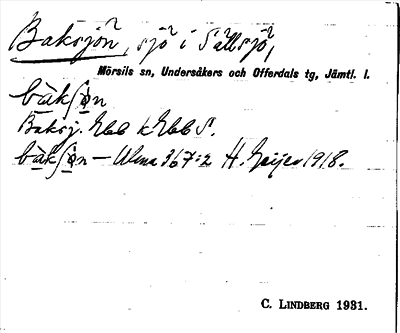 Baksjön, sjö i Sällsjö,
Mörsils sn, Undersåkers och Offerdals tg, Jämtl. l.
bàkʃøn
Baksj. Ebb k Ebb S.
bàkʃøn – Ulma 367:2 H. Geijer 1918.
C. LINDBERG 1931.